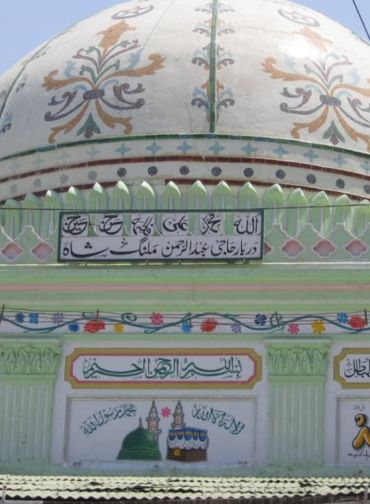 اللہ محمد علی فاطمہ حسن حسین
دربار حاجی عبدالرحمن ملنگ شاہ
بسم اللہ الرحمن الرحیم
لا الہ الا اللہ
محمد رسول اللہ